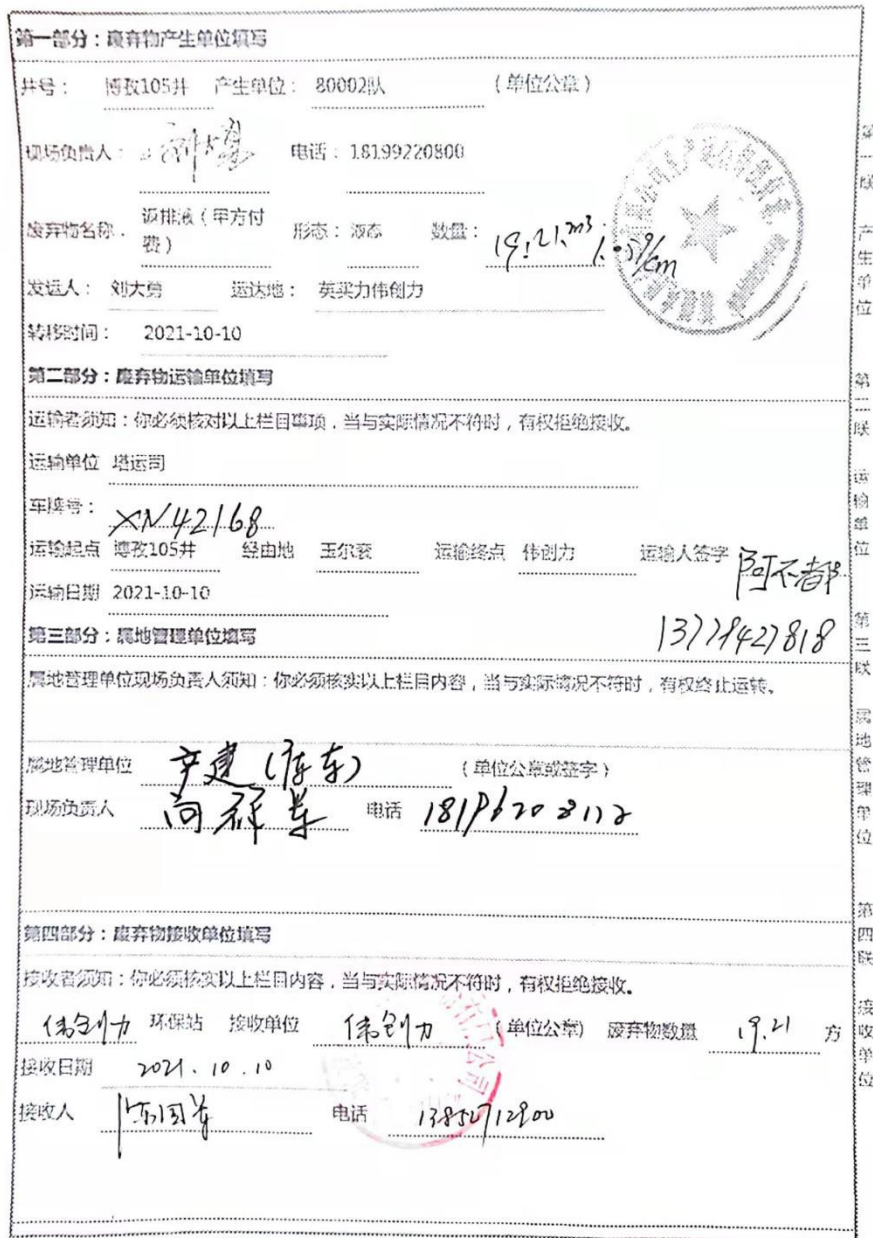 第一部分：废弃物产生单位填写
井号： 博孜105井 产生单位： 80002队 （单位公章）
现场负责人： 刘大勇 电话：18199220800
废弃物名称： 返排液（甲方付费） 形态：液态 数量： 19.21m3
发运人： 刘大勇 运达地： 英买力伟创力
转移时间： 2021-10-10
第二部分：废弃物运输单位填写
运输者须知：你必须核对以上栏目事项，当与实际情况不符时，有权拒绝接收。
运输单位 塔运司
车牌号： XN42168
运输起点 博孜105井 经由地 玉尔衮 运输终点 伟创力 运输人签字 阿不都
运输日期 2021-10-10
13779427818
第三部分：属地管理单位填写
属地管理单位现场负责人须知：你必须核实以上栏目内容，当与实际情况不符时，有权终止运转。
属地管理单位 产建(库车) （单位公章或签字）
现场负责人 电话
第四部分：废弃物接收单位填写
接收者须知：你必须核实以上栏目内容，当与实际情况不符时，有权拒绝接收。
伟创力 环保站 接收单位 伟创力 （单位公章） 废弃物数量 19.21 方
接收日期 2021.10.10
接收人 电话 13852712900
第一联 产生单位
第二联 运输单位
第三联 属地管理单位
第四联 接收单位